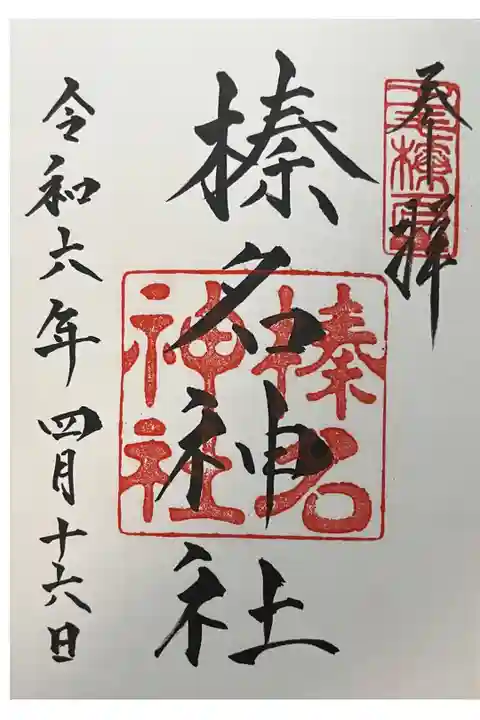 奉拝
榛名神社
榛名神社
令和六年四月十六日